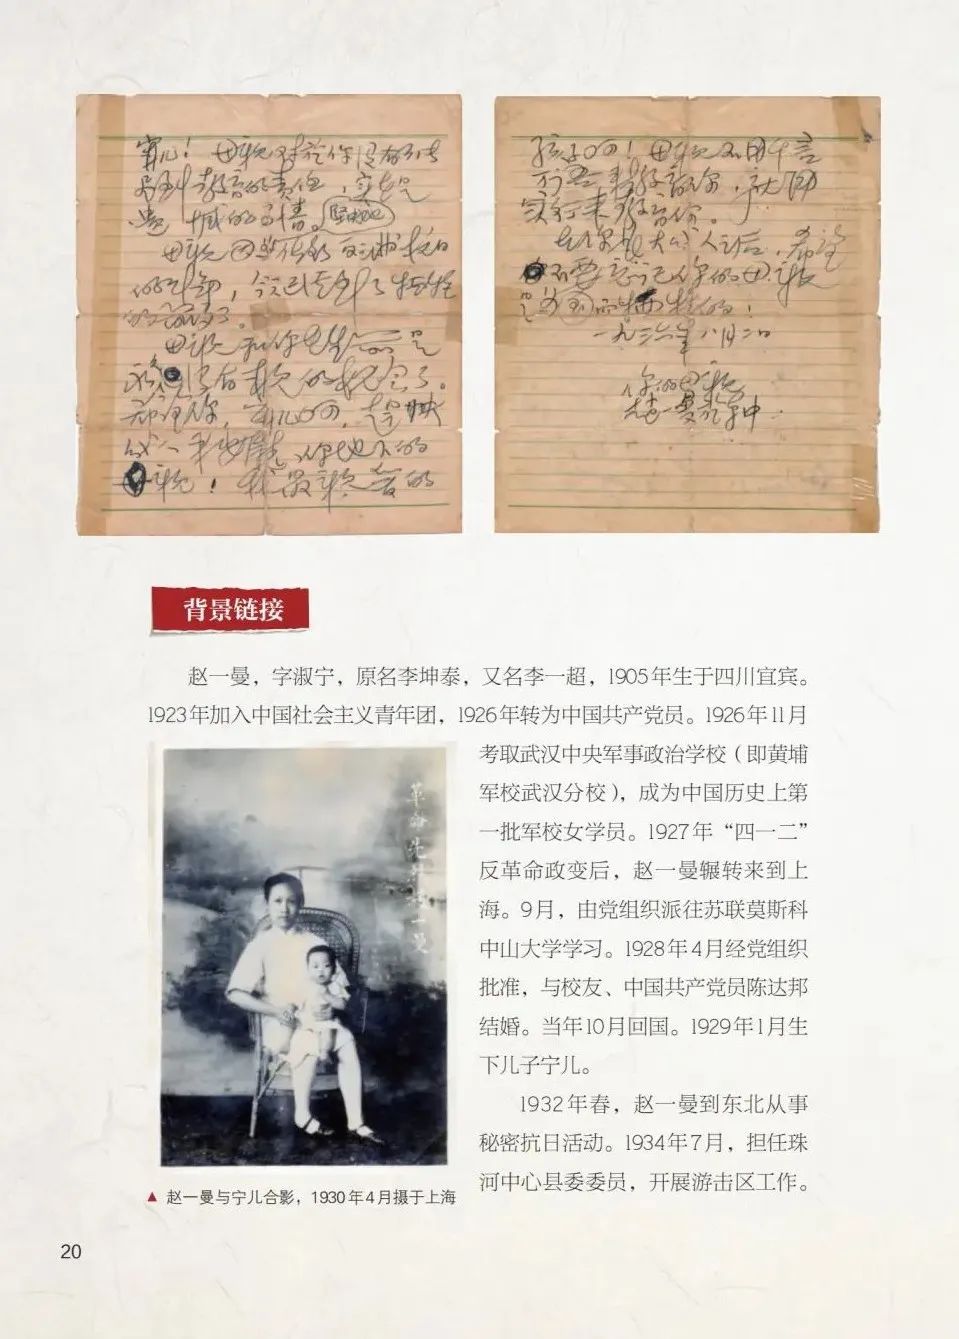 宁儿！母親对於你没有能尽
到教育的责任，实在是
遗憾的事情。坚决地
母親因为做了反满抗日
的斗争，今天已经到了牺牲
的前夕了。
母親和你在生前是
永久没有再見的机会了。
希望你，宁儿啊，赶快
成人，来安慰你地下的
母親！我最親爱的
孩子啊！母親不用千言
万语来教育你，就用
实行来教育你。
在你长大成人之后，希望
不要忘记你的母親
是为国而牺牲的！
一九三六年八月二日
你的母親
赵一曼於车中
背景链接
赵一曼，字淑宁，原名李坤泰，又名李一超，1905年生于四川宜宾。
1923年加入中国社会主义青年团，1926年转为中国共产党员。1926年11月
考取武汉中央军事政治学校（即黄埔
军校武汉分校），成为中国历史上第
一批军校女学员。1927年“四一二”
反革命政变后，赵一曼辗转来到上
海。9月，由党组织派往苏联莫斯科
中山大学学习。1928年4月经党组织
批准，与校友、中国共产党员陈达邦
结婚。当年10月回国。1929年1月生
下儿子宁儿。
1932年春，赵一曼到东北从事
秘密抗日活动。1934年7月，担任珠
河中心县委委员，开展游击区工作。
革命先 一曼
▲ 赵一曼与宁儿合影，1930年4月摄于上海
20